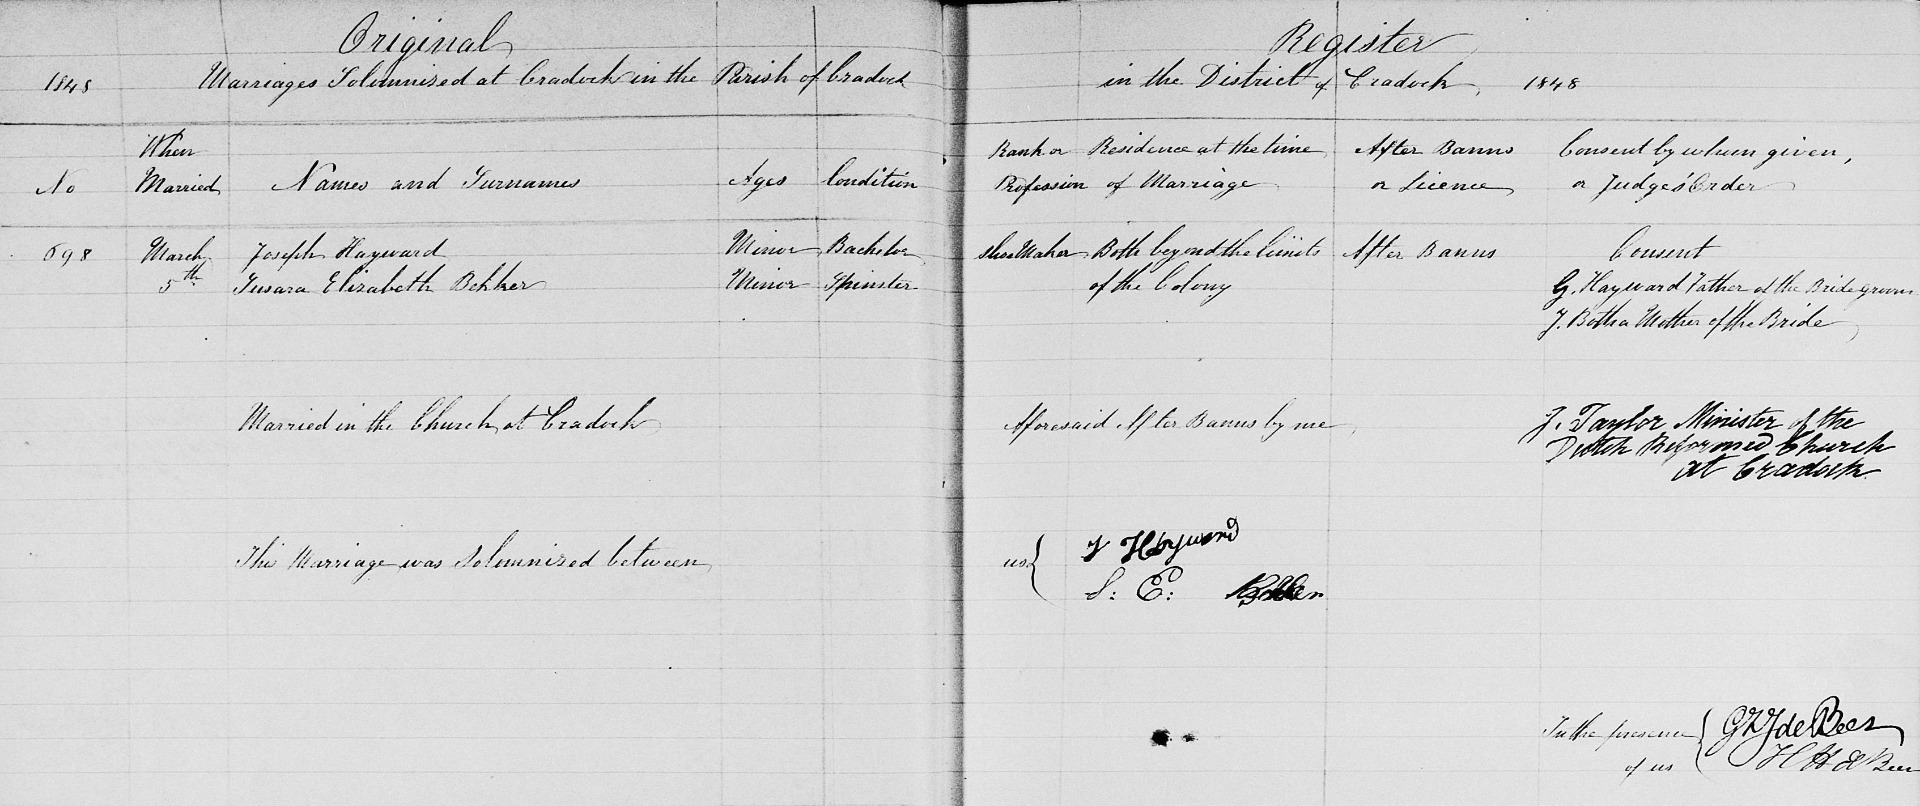 Original Register
1848 Marriages Solemnised at Cradock in the Parish of Cradock in the District of Cradock, 1848
When Rank or Residence at the time After Banns Consent by whom given,
No Married Names and Surnames Ages Condition Profession of Marriage or Licence or Judges Order
698 March Joseph Hayward Minor Bachelor Shoe Maker Both beyond the limits After Banns Consent
5th Susara Elizabeth Bekker Minor Spinster of the Colony G. Hayward Father of the Bridegroom
J. Botha Mother of the Bride
Married in the Church at Cradock Aforesaid After Banns by me J. Taylor Minister of the
Dutch Reformed Church
at Cradock
This Marriage was Solemnized between us J Hayward
S: E:
In the presence de Beer
of us H